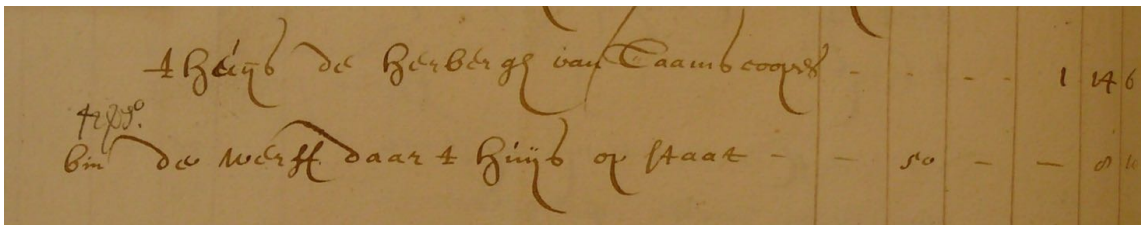 t Huijs de Herbergh van Taams coopes - - - - 1 14 6
bin de werff daar t Huijs op staat - - 50 - - 8